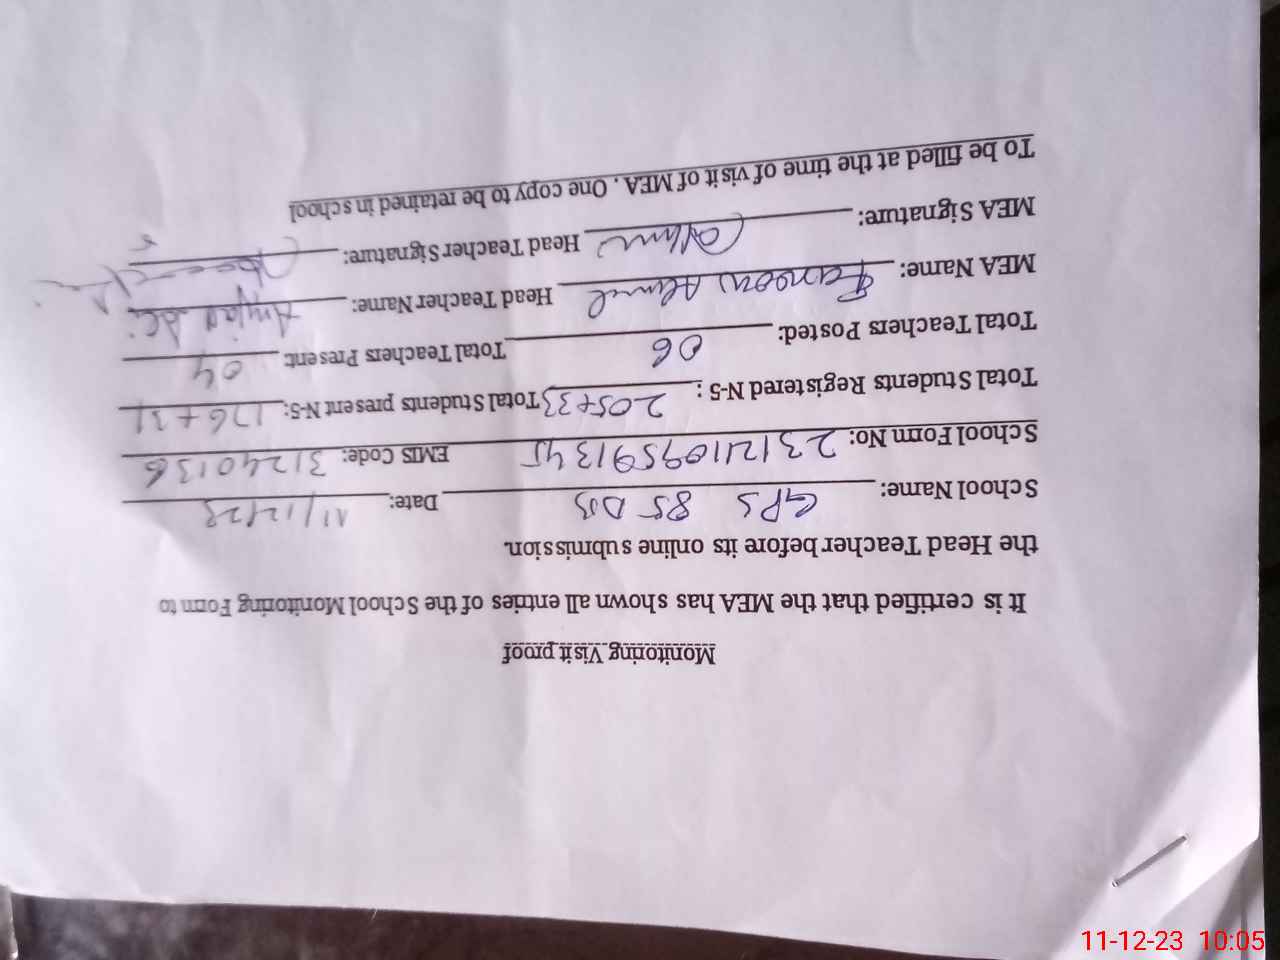 Monitoring Visit proof
It is certified that the MEA has shown all entries of the School Monitoring Form to
the Head Teacher before its online submission.
School Name: GPS 85 DB Date: 11/12/23
School Form No: EMIS Code: 31240136
Total Students Registered N-5 : 205+33 Total Students present N-5: 176+31
Total Teachers Posted: 06 Total Teachers Present: 04
MEA Name: Head Teacher Name: Amjad Ali
MEA Signature: Head Teacher Signature:
To be filled at the time of visit of MEA . One copy to be retained in school
11-12-23 10:05